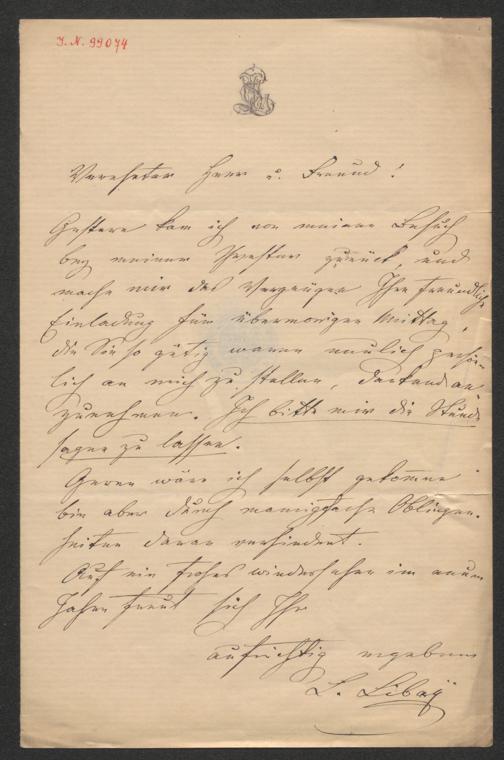 I. N. 99074
Verehrter Herr u. Freund!
Gestern kam ich von meinem Besuch
bey meiner Schwester zurück, und
mache mir das Vergnügen Ihre freundliche
Einladung für übermorgen Mittag,
die Sie so gütig waren neulich persön-
lich an mich zu stellen, dankend an-
zunehmen. Ich bitte mir die Stunde
sagen zu lassen.
Gerne wäre ich selbst gekommen
bin aber durch mannigfache Obliegen-
heiten daran verhindert.
Auf ein frohes wiedersehen im neuen
Jahre freut sich Ihr
aufrichtig ergebener
L. Libaÿ